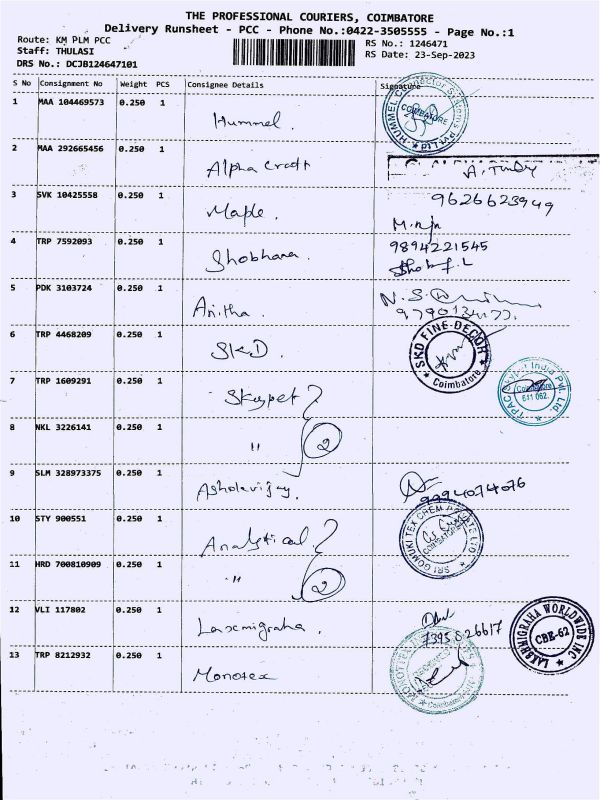 THE PROFESSIONAL COURIERS, COIMBATORE
Delivery Runsheet - PCC - Phone No.:0422-3505555 - Page No.:1
Route: KM PLM PCC
RS No.: 1246471
Staff: THULASI
RS Date: 23-Sep-2023
DRS No.: DCJB124647101
S No Consignment No Weight PCS Consignee Details Signature
1 MAA 104469573 0.250 1 Hummel.
COIMBATORE
2 MAA 292665456 0.250 1 Alpha Craft
3 SVK 10425558 0.250 1 Maple.
9626623949
4 TRP 7592093 0.250 1 Shobhana.
9894221545
5 PDK 3103724 0.250 1 Anitha.
6 TRP 4468209 0.250 1 SKD.
SKD FINE DECOR
Coimbatore
7 TRP 1609291 0.250 1 Skypet
Coimbatore
641 062.
8 NKL 3226141 0.250 1 " 2
9 SLM 328973375 0.250 1 Ashokvijay.
9994074076
10 STY 900551 0.250 1 Analytical
SRI GOMUKI TEX CHEM PRIVATE LTD
COIMBATORE
11 HRD 700810909 0.250 1 " 2
12 VLI 117802 0.250 1 Laxmigraha.
7395826617
LAKSHMIGRAHA WORLDWIDE INC
CBE-62
13 TRP 8212932 0.250 1 Monotex